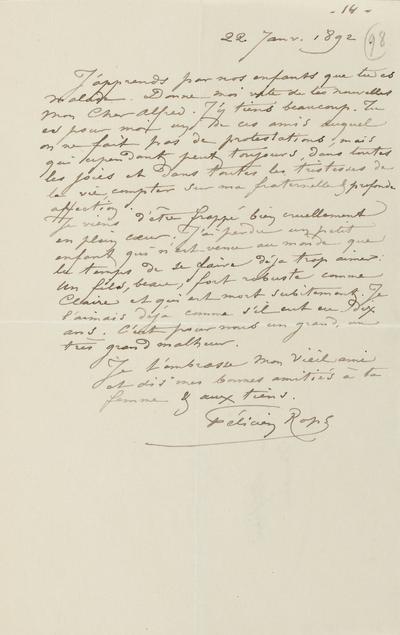 - 14 -
98
22 Janv. 1892
J'apprends par nos enfants que tu es
malade. Donne moi vite de tes nouvelles
mon cher Alfred. J'y tiens beaucoup. Tu
es pour moi un de ces amis auquel
on ne fait pas de protestations, mais
qui cependant peut toujours, dans toutes
les joies et dans toutes les tristesses de
la vie, compter sur ma fraternelle & profonde
affection.
Je viens d'être frappé bien cruellement
en plein cœur, j'ai perdu un petit
enfant qui n'est venu au monde que
le temps de se faire déjà trop aimer.
Un fils, beau, fort robuste comme
Claire et qui est mort subitement. Je
l'aimais déjà comme s'il eut eu dix
ans. C'est pour nous un grand, un
très grand malheur.
Je t'embrasse mon vieil ami
et dis mes bonnes amitiés à ta
femme & aux tiens.
Félicien Rops